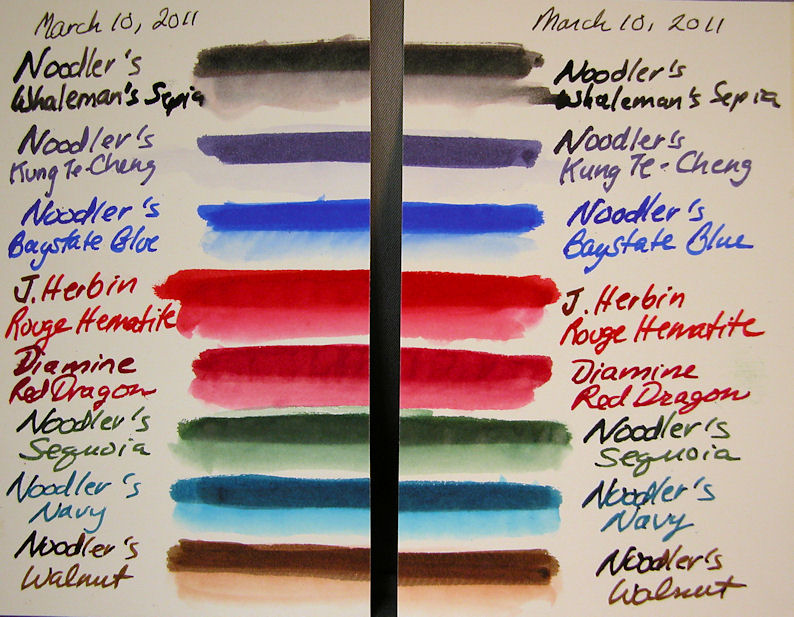 March 10, 2011
Noodler's
Whaleman's Sepia
Noodler's
Kung Te-Cheng
Noodler's
Baystate Blue
J. Herbin
Rouge Hematite
Diamine
Red Dragon
Noodler's
Sequoia
Noodler's
Navy
Noodler's
Walnut
March 10, 2011
Noodler's
Whaleman's Sepia
Noodler's
Kung Te-Cheng
Noodler's
Baystate Blue
J. Herbin
Rouge Hematite
Diamine
Red Dragon
Noodler's
Sequoia
Noodler's
Navy
Noodler's
Walnut